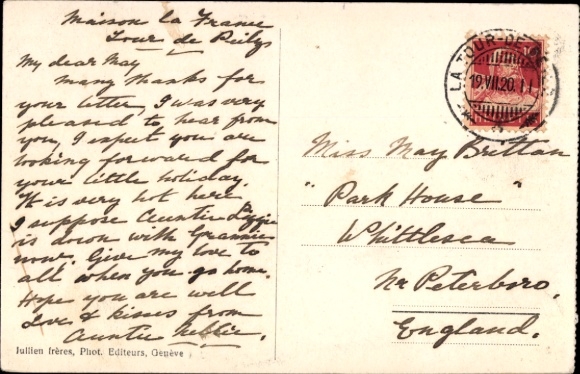 Maison la France
Tour de Peilys
My dear May
Many thanks for
your letter, I was very
pleased to hear from
you, I expect you are
looking forward for
your little holiday.
It is very hot here
I suppose Auntie Lizzie
is down with Grannie
now. Give my love to
all when you go home.
Hope you are well
Love & kisses from
Auntie Nellie.
Jullien frères, Phot. Editeurs, Genève
LA TOUR-DE-
19.VII.20. 11
Miss May Brittan
"Park House"
Whittlesea
Nr Peterboro.
England.